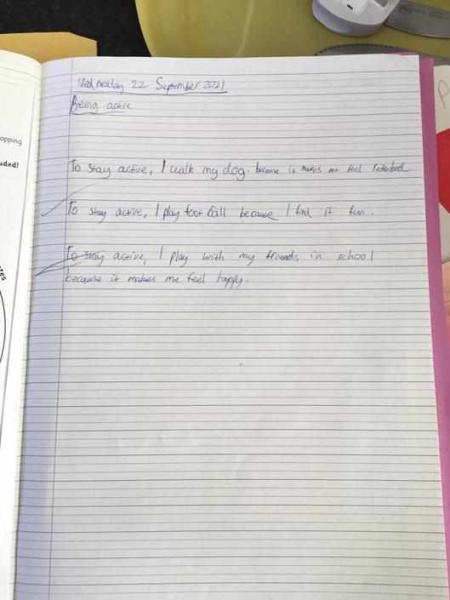 Wednesday 22 September 2021
Being active
To stay active, I walk my dog. because it makes me feel
To stay active, I play foot ball because I find it fun.
To stay active, I play with my friends in school
because it makes me feel happy.
opping
uded!
P